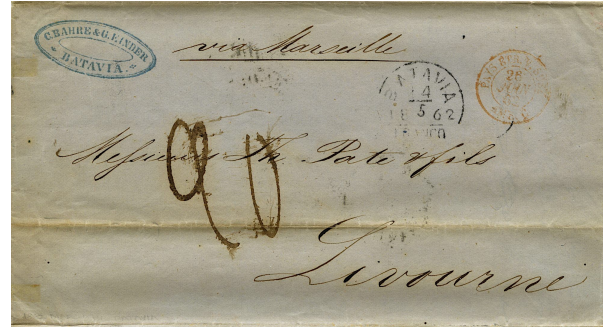 C. BAHRE & G. KINDER
BATAVIA.
via Marseille
BATAVIA
14
5
62
FRANCO
28
Messieurs Th. Pate & fils
90
Livourne